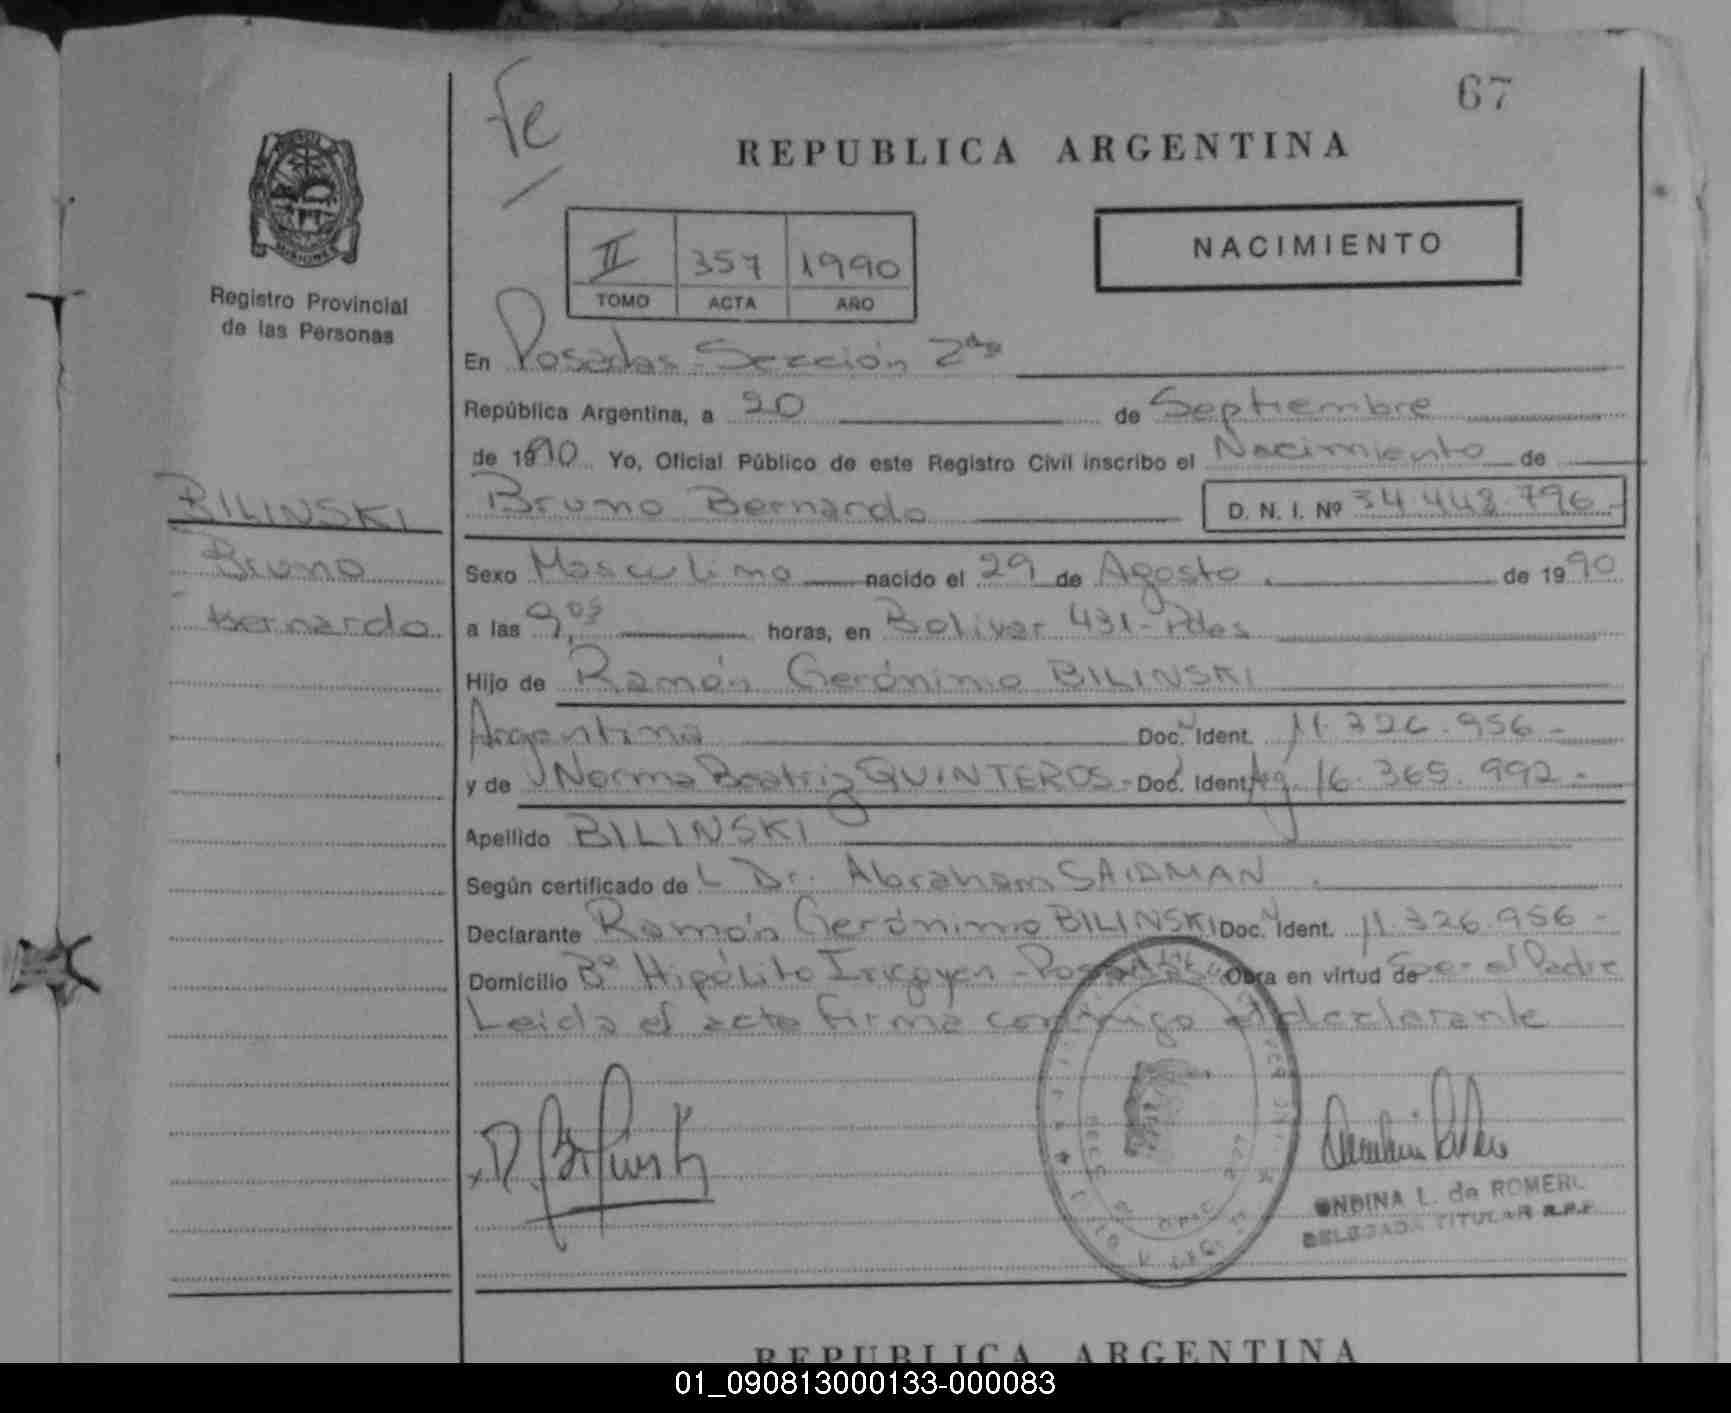 67
Fe
REPUBLICA ARGENTINA
NACIMIENTO
II 357 1990
TOMO ACTA AÑO
MISIONES
Registro Provincial
de las Personas
En Posadas Sección 2da
República Argentina, a 20 de Septiembre
de 1990 Yo, Oficial Público de este Registro Civil inscribo el Nacimiento de
BILINSKI
Bruno
Bernardo
Bruno Bernardo D. N. I. Nº 34.448.796.-
Sexo Masculino nacido el 29 de Agosto de 1990
a las 9,05 horas, en Bolivar 431 - Pdas
Hijo de Ramón Gerónimo BILINSKI
Argentino Doc. Ident. 11.326.956 -
y de Norma Beatriz QUINTEROS - Doc. Ident. Arg. 16.365.992 -
Apellido BILINSKI
Según certificado de L Dr. Abraham SAIDMAN
Declarante Ramón Gerónimo BILINSKI Doc. Ident. 11.326.956 -
Domicilio Bº Hipólito Irigoyen - Posadas Obra en virtud de Ser el Padre
Leida el acta firma conmigo el declarante
ONDINA L. de ROMERO
DELEGADA TITULAR R.P.P.
REPUBLICA ARGENTINA
01_090813000133-000083